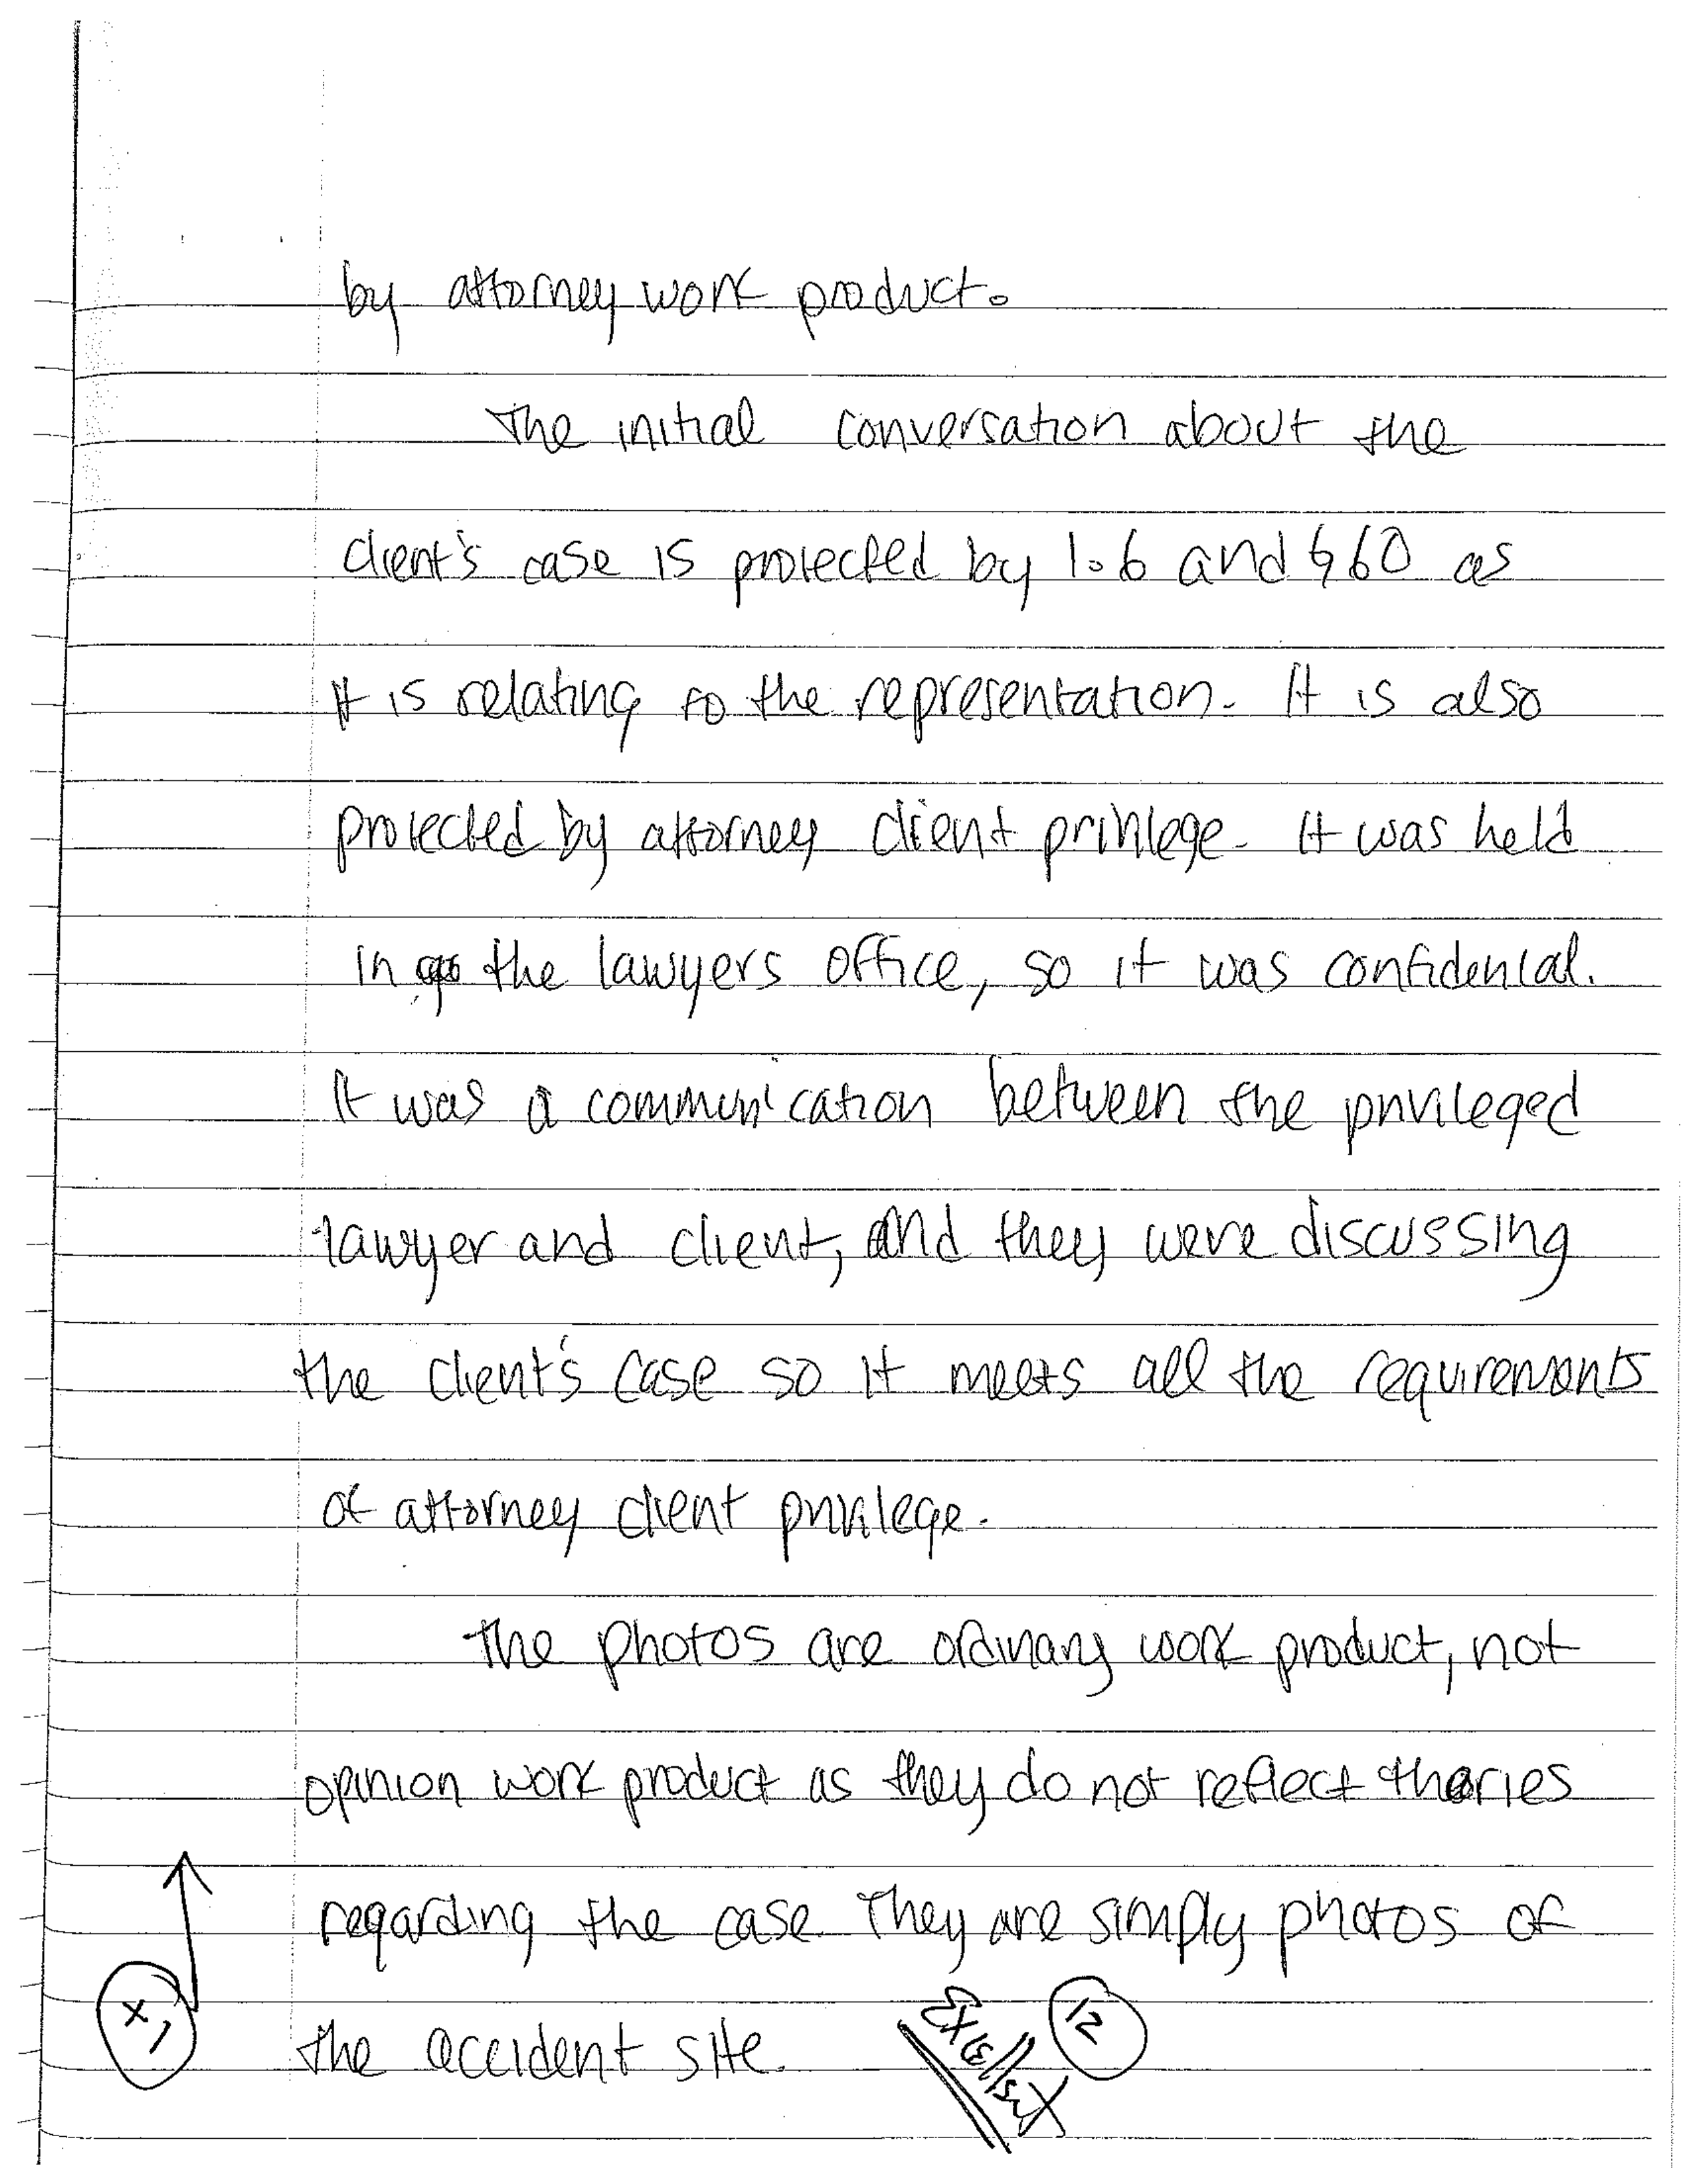 by attorney work product.
The initial conversation about the
client's case is protected by 1.6 and §60 as
it is relating to the representation. It is also
protected by attorney client privilege. It was held
in the lawyers office, so it was confidential.
It was a communication between the privileged
lawyer and client, and they were discussing
the client's case so it meets all the requirements
of attorney client privilege.
The photos are ordinary work product, not
opinion work product as they do not reflect theories
regarding the case. They are simply photos of
the accident site.
Excellent
12